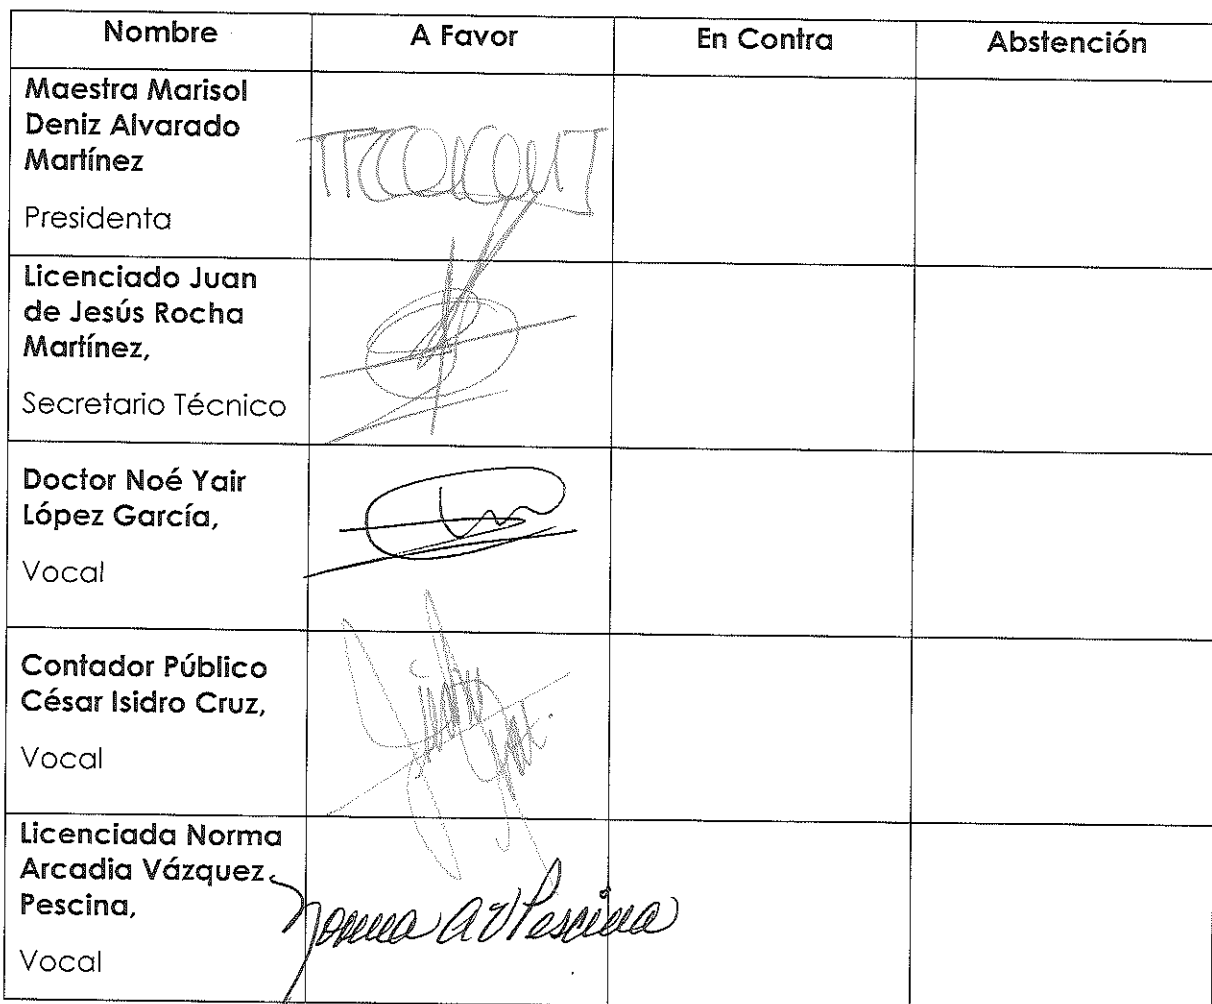 Nombre A Favor En Contra Abstención
Maestra Marisol
Deniz Alvarado
Martínez
Presidenta
Licenciado Juan
de Jesús Rocha
Martínez,
Secretario Técnico
Doctor Noé Yair
López García,
Vocal
Contador Público
César Isidro Cruz,
Vocal
Licenciada Norma
Arcadia Vázquez
Pescina,
Norma A V Pescina
Vocal